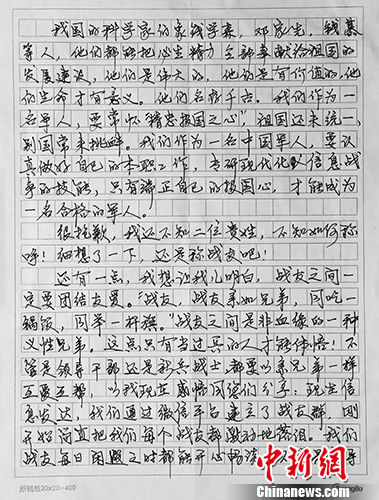 我国的科学家们象钱学森，邓家先，钱基
等人，他们都能把毕生精力全部奉献给祖国的
发展建设，他们是伟大的，他们是有价值的，他
们的生命才有意义。他们名扬千古。我们作为一
名军人，要常怀“精忠报国之心”祖国还未统一，
别国常来挑衅。我们作为一名中国军人，要认
真做好自己的本职工作，专研现代化以信息战
争的技能，只有端正自己的报国心，才能成为
一名合格的军人。
很抱歉，我还不知二位贵姓，不知如何称
呼！细想了一下，还是称战友吧！
还有一点，我想让我儿明白，战友之间一
定要团结友爱。“战友，战友亲如兄弟，同吃一
锅饭，同举一杆旗。”战友之间是非血缘的一种
义性兄弟。这点只有当过兵的人才能体悟！不
管是领导干部还是税兵战士都要以亲兄弟一样
互爱互帮，以我现在感悟同您们分享：现在信
息发达，我们通过微信平台建立了战友群，刚
开始简直把我们每个战友都激动地落泪。我们
战友每日闲暇之时都能开心畅
原稿纸20×20=400
中新网
www.chinanews.com